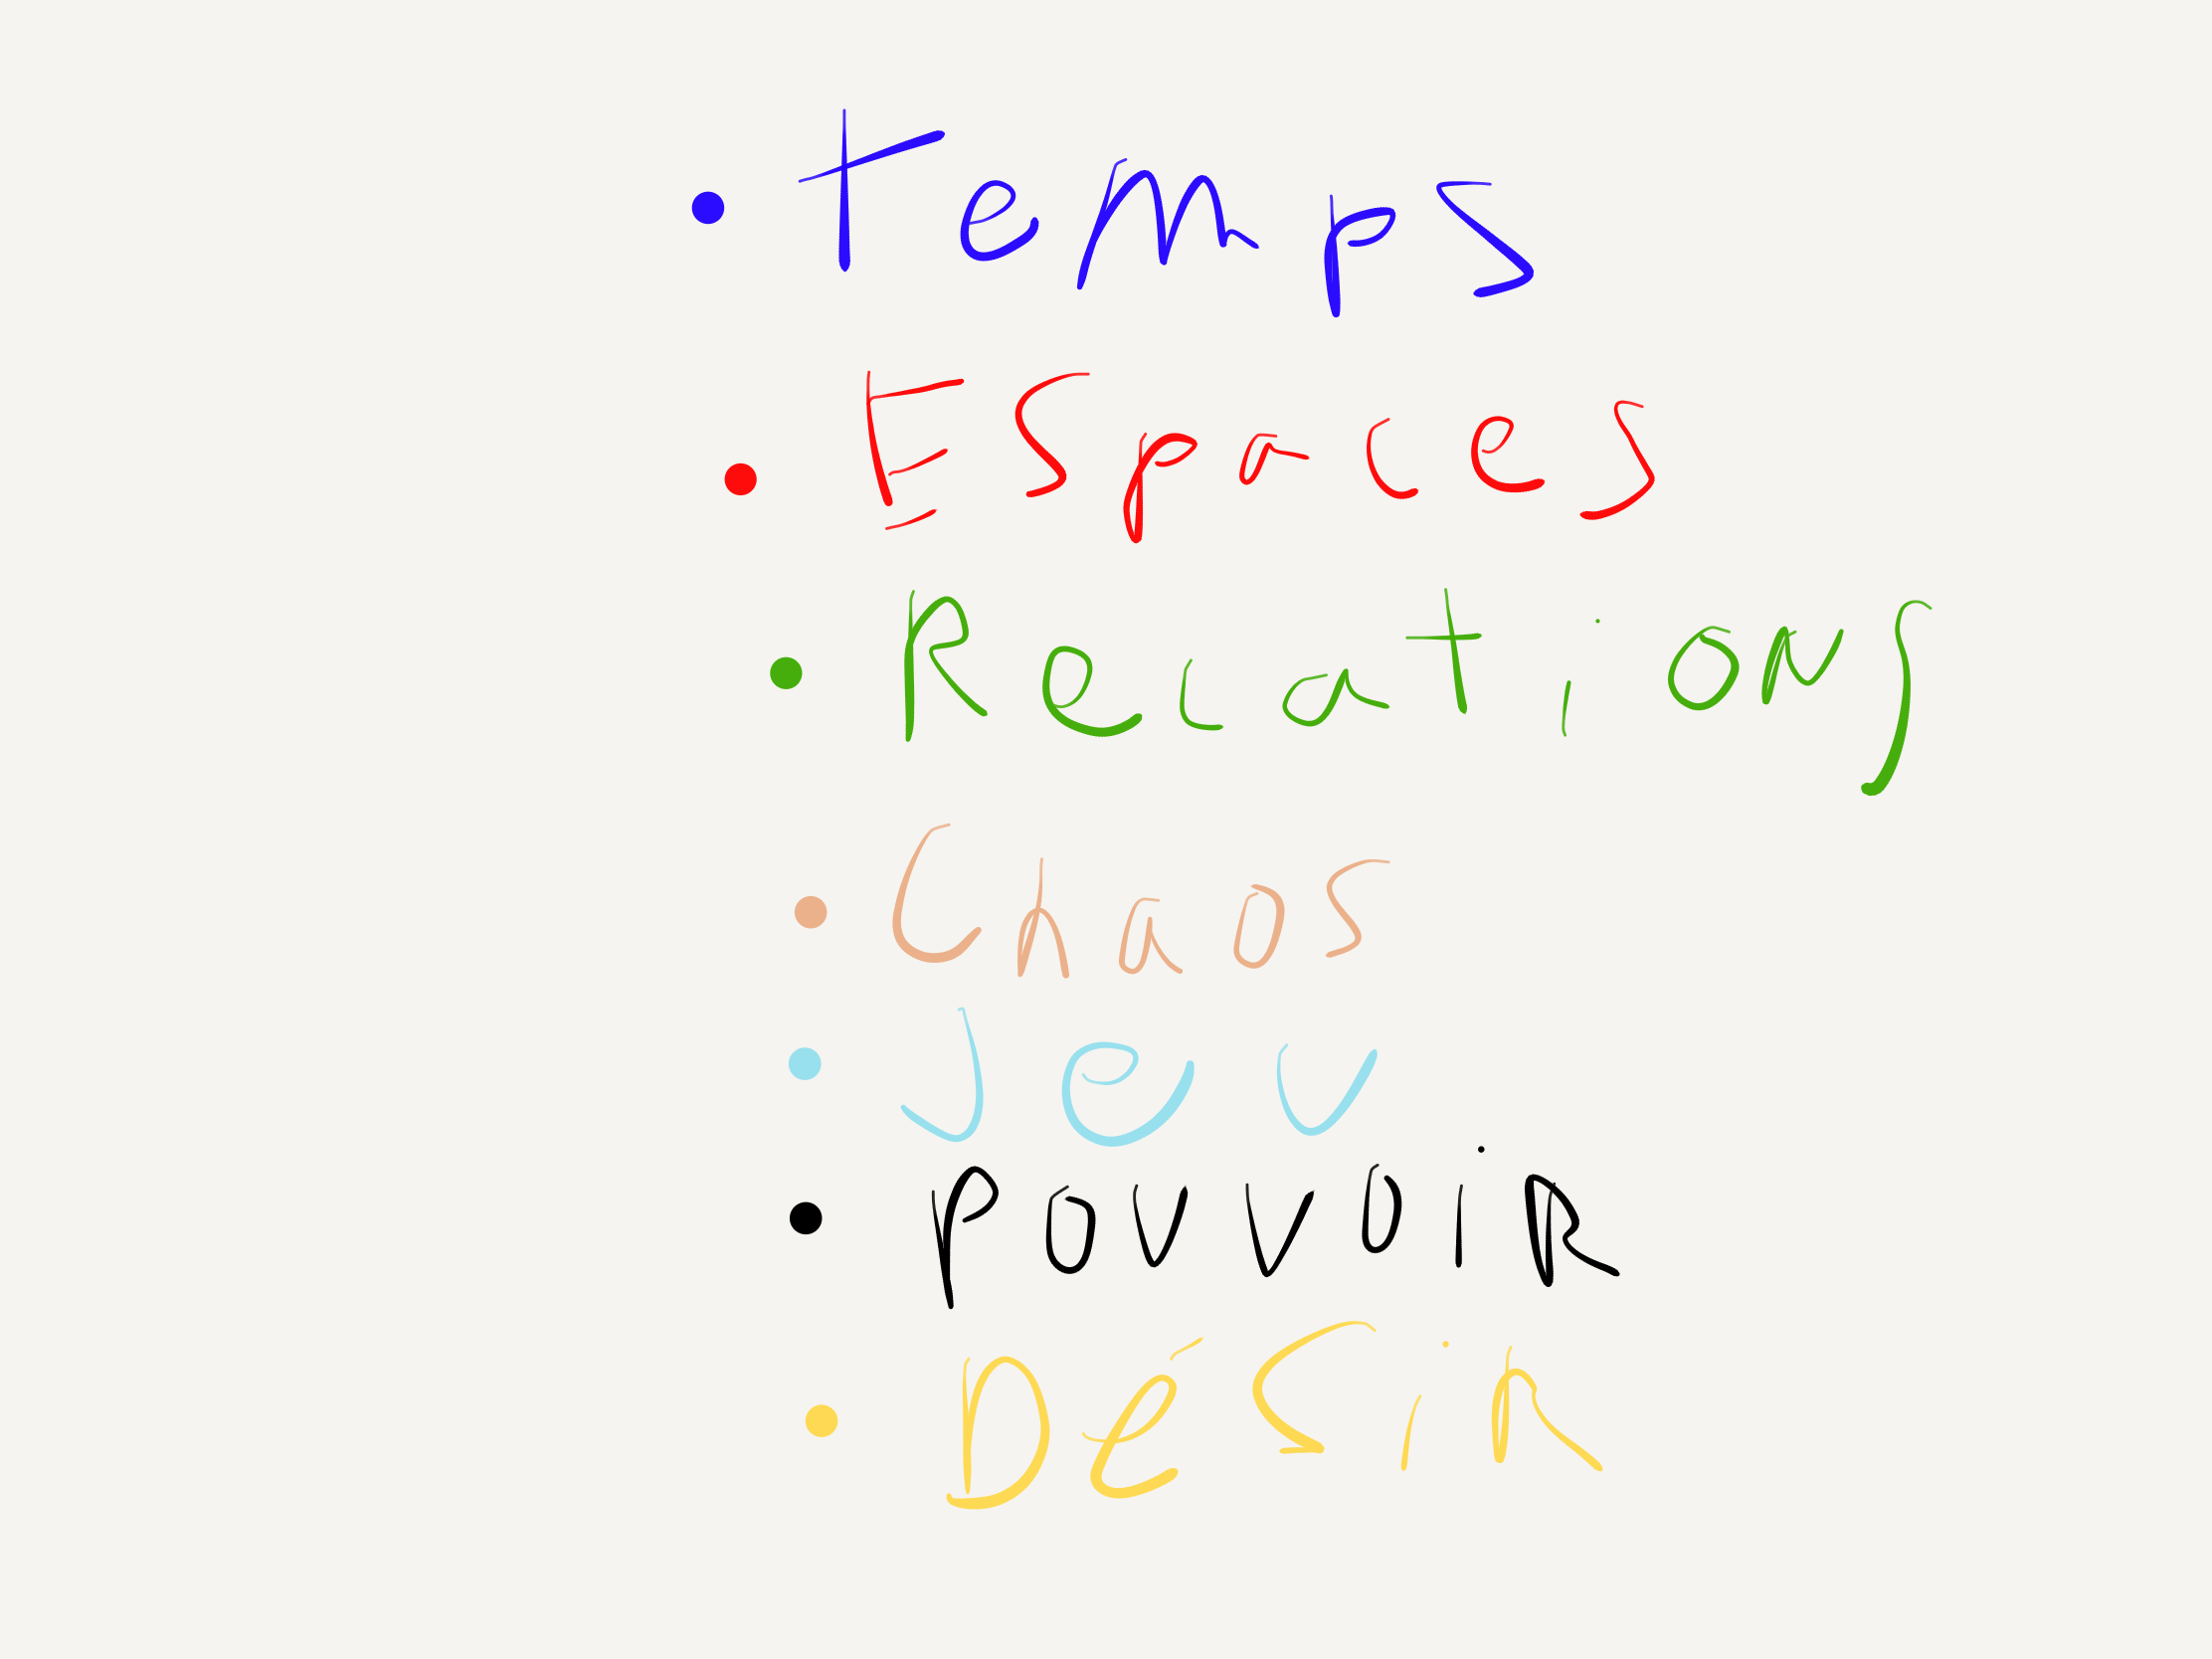 • Temps
• Espaces
• Relations
• Chaos
• Jeu
• Pouvoir
• Désir